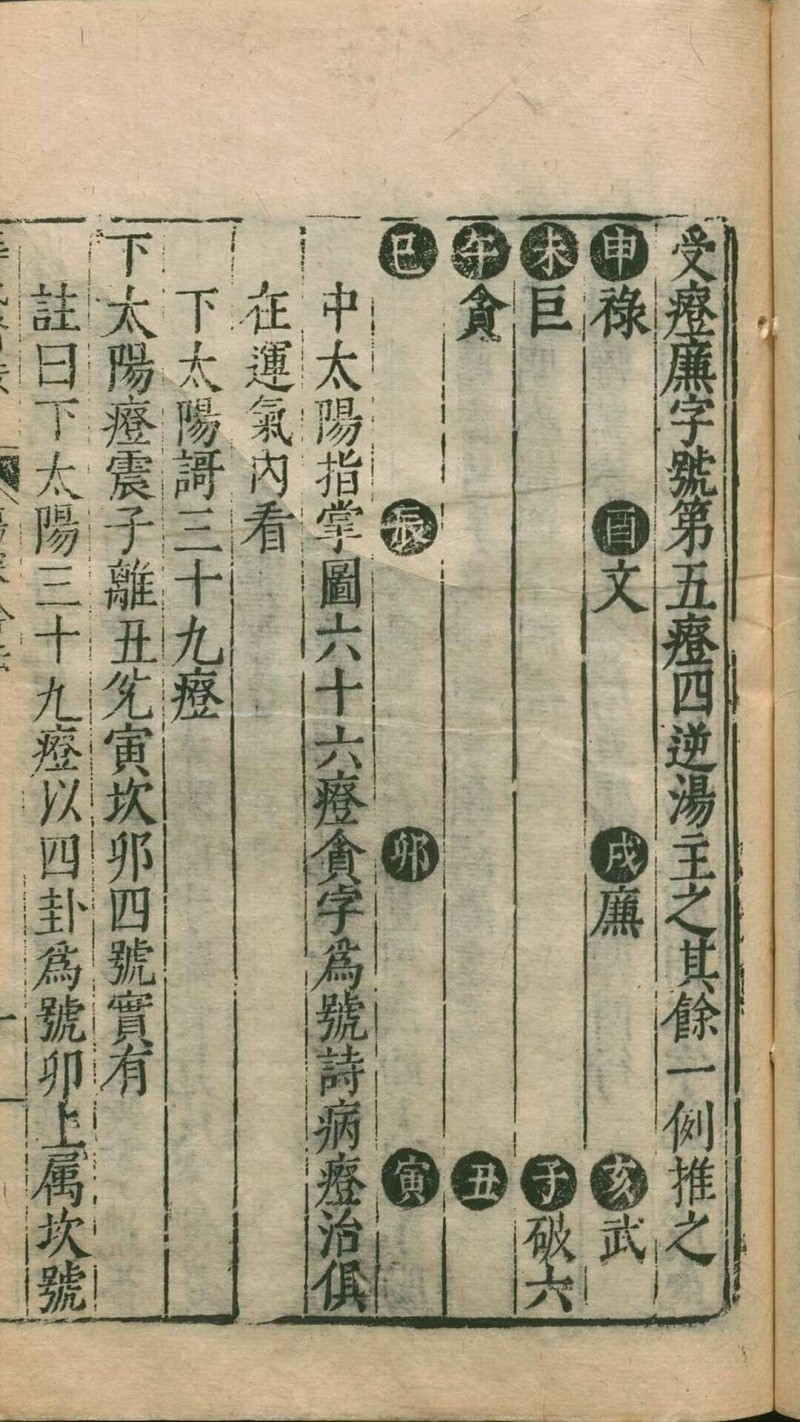 受癥廉字號第五癥四逆湯主之其餘一例推之
申祿 酉文 戌廉 亥武
未巨 子破六
午貪 丑
巳 辰 卯 寅
中太陽指掌圖六十六癥貪字爲號詩病癥治俱
在運氣內看
下太陽謌三十九癥
下太陽癥震子離丑兊寅坎卯四號實有
註曰下太陽三十九癥以四卦爲號卯上属坎號